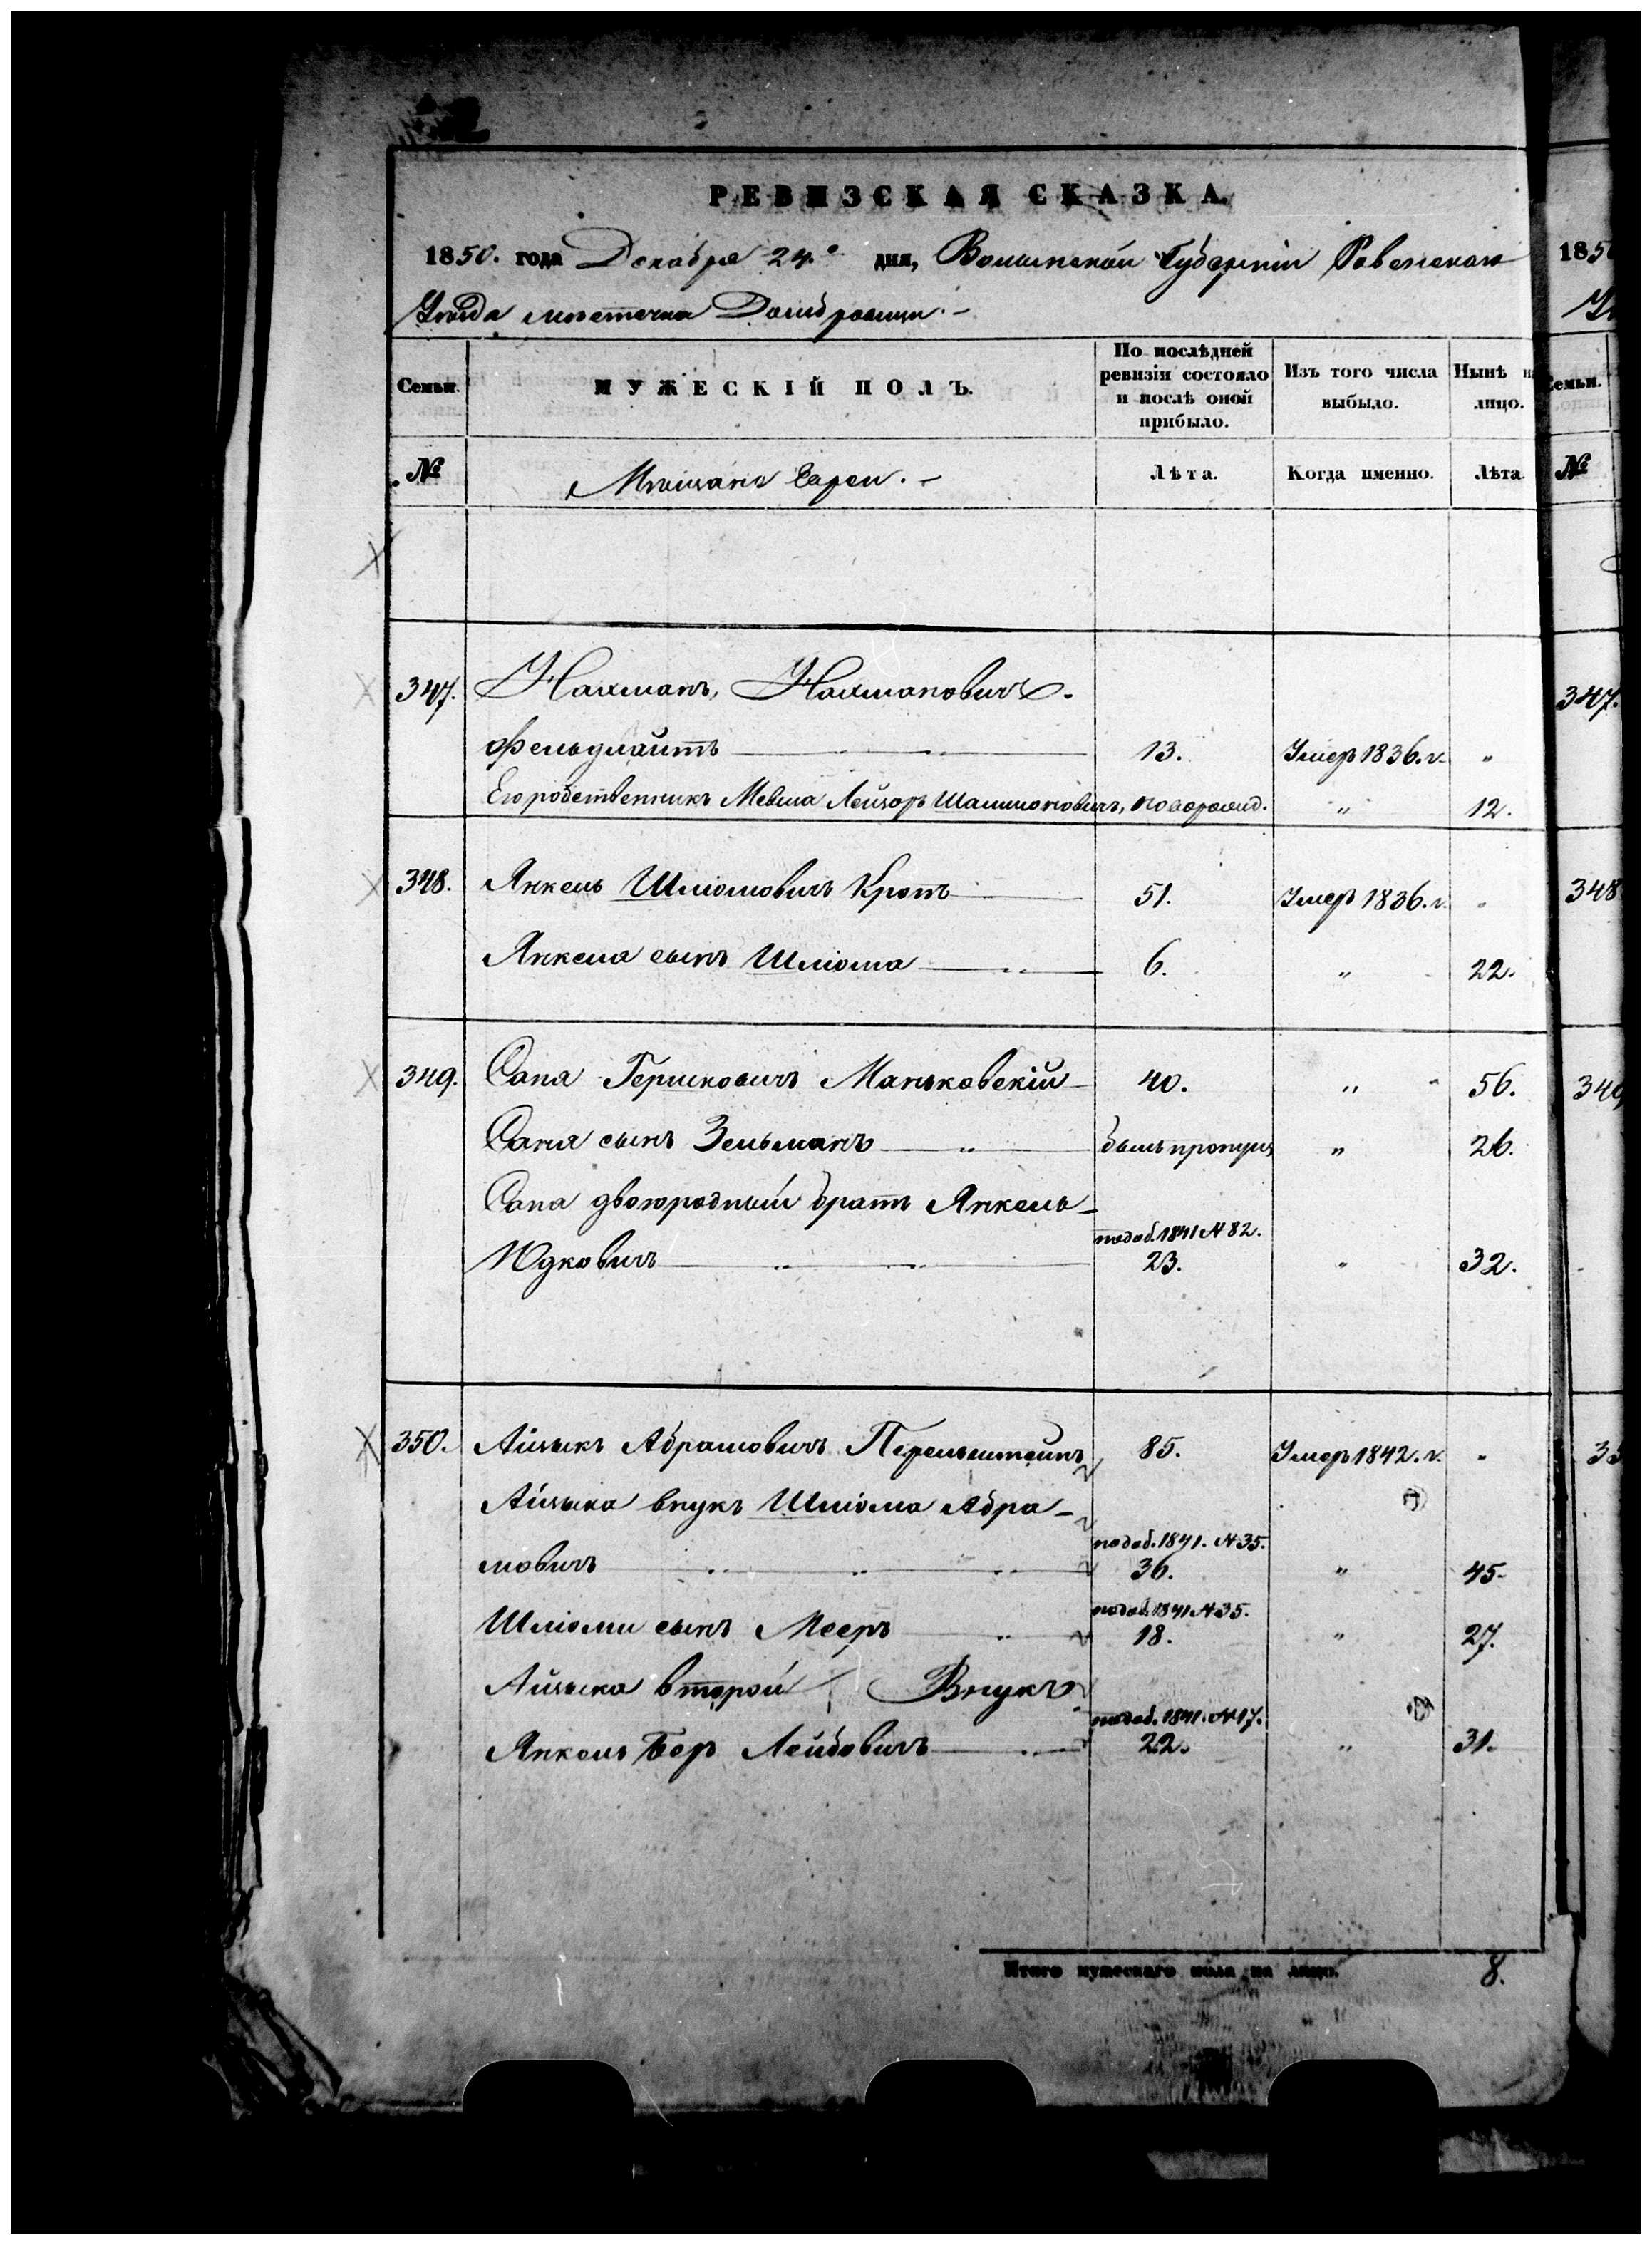 РЕВИЗСКАЯ СКАЗКА.
1850. года Декабря 24.го дня, Волынской Губерніи Ровенскаго
Уѣзда мѣстечка Домбровицы. –
Семьи. МУЖЕСКІЙ ПОЛЪ. По послѣдней ревизіи состояло и послѣ оной прибыло. Изъ того числа выбыло. Нынѣ н лицо.
№ Мѣщане Евреи. – Лѣта. Когда именно. Лѣта.
347. Нахманъ, Нахмановичъ.
Фельдлайтъ 13. Умеръ 1836. г. "
Его родственникъ Мевша Лейзоръ Шлимоновичъ, новорожд. " 12.
348. Янкель Шліомовичъ Кротъ 51. Умеръ 1836. г. "
Янкеля сынъ Шліома 6. " 22.
349. Сапа Гершковичъ Маньковскій 40. " 56.
Сапа сынъ Зельманъ былъ пропущ " 26.
Сапа двоюродный братъ Янкель
по доб. 1841 № 82.
Юдковичъ 23. " 32.
350. Айзыкъ Абрамовичъ Перельштейнъ 85. Умеръ 1842. г. "
Айзыка внукъ Шліома Абра–
по доб. 1841. № 35.
мовичъ 36. " 45.
по доб. 1841 № 35.
Шліомы сынъ Мееръ 18. " 27.
Айзыка второй Внукъ
по доб. 1841. № 17.
Янкель Беръ Лейбовичъ 22. " 31.
Итого мужескаго пола на лицо. 8.
185
Семьи.
№
347.
348
349
35